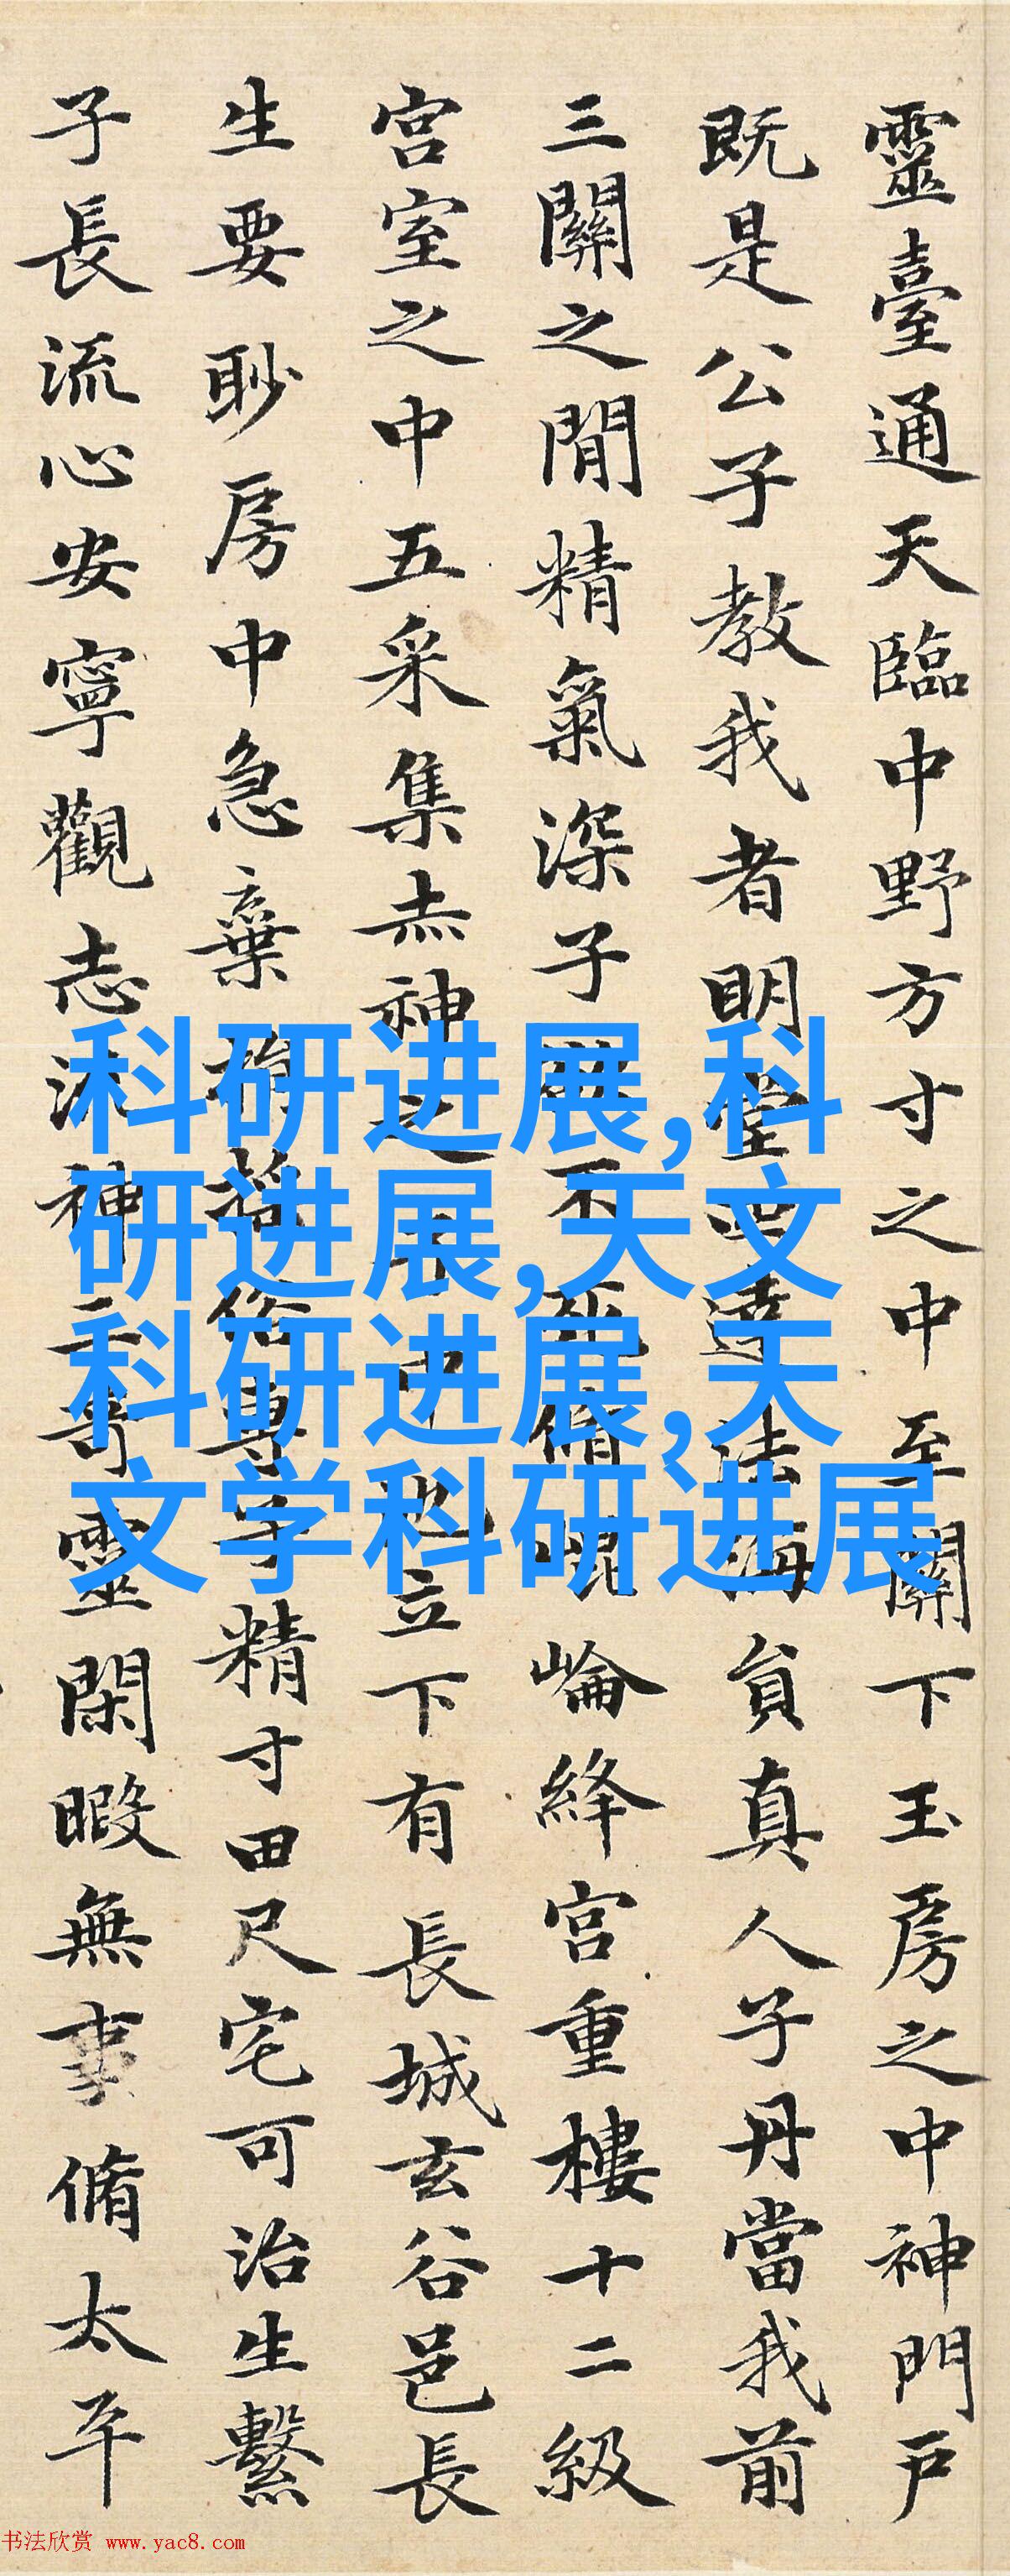 靈臺通天臨中野方寸之中至關下玉房之中神門戶
既是公子教我者明堂四達法海員真人子丹當我前
三關之閒精氣深子欲不死脩崐崘絳宮重樓十二級
宮室之中五采集赤神之子中池立下有長城玄谷邑長
生要眇房中急棄捐俗專子精寸田尺宅可治生繫
子長流心安寧觀志流神三奇靈閑暇無事脩太平
科研进展,科
研进展,天文
科研进展,天
文学科研进展
书法欣赏 www.yac8.com